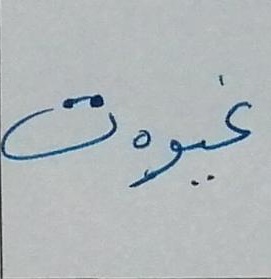 غيوه ت